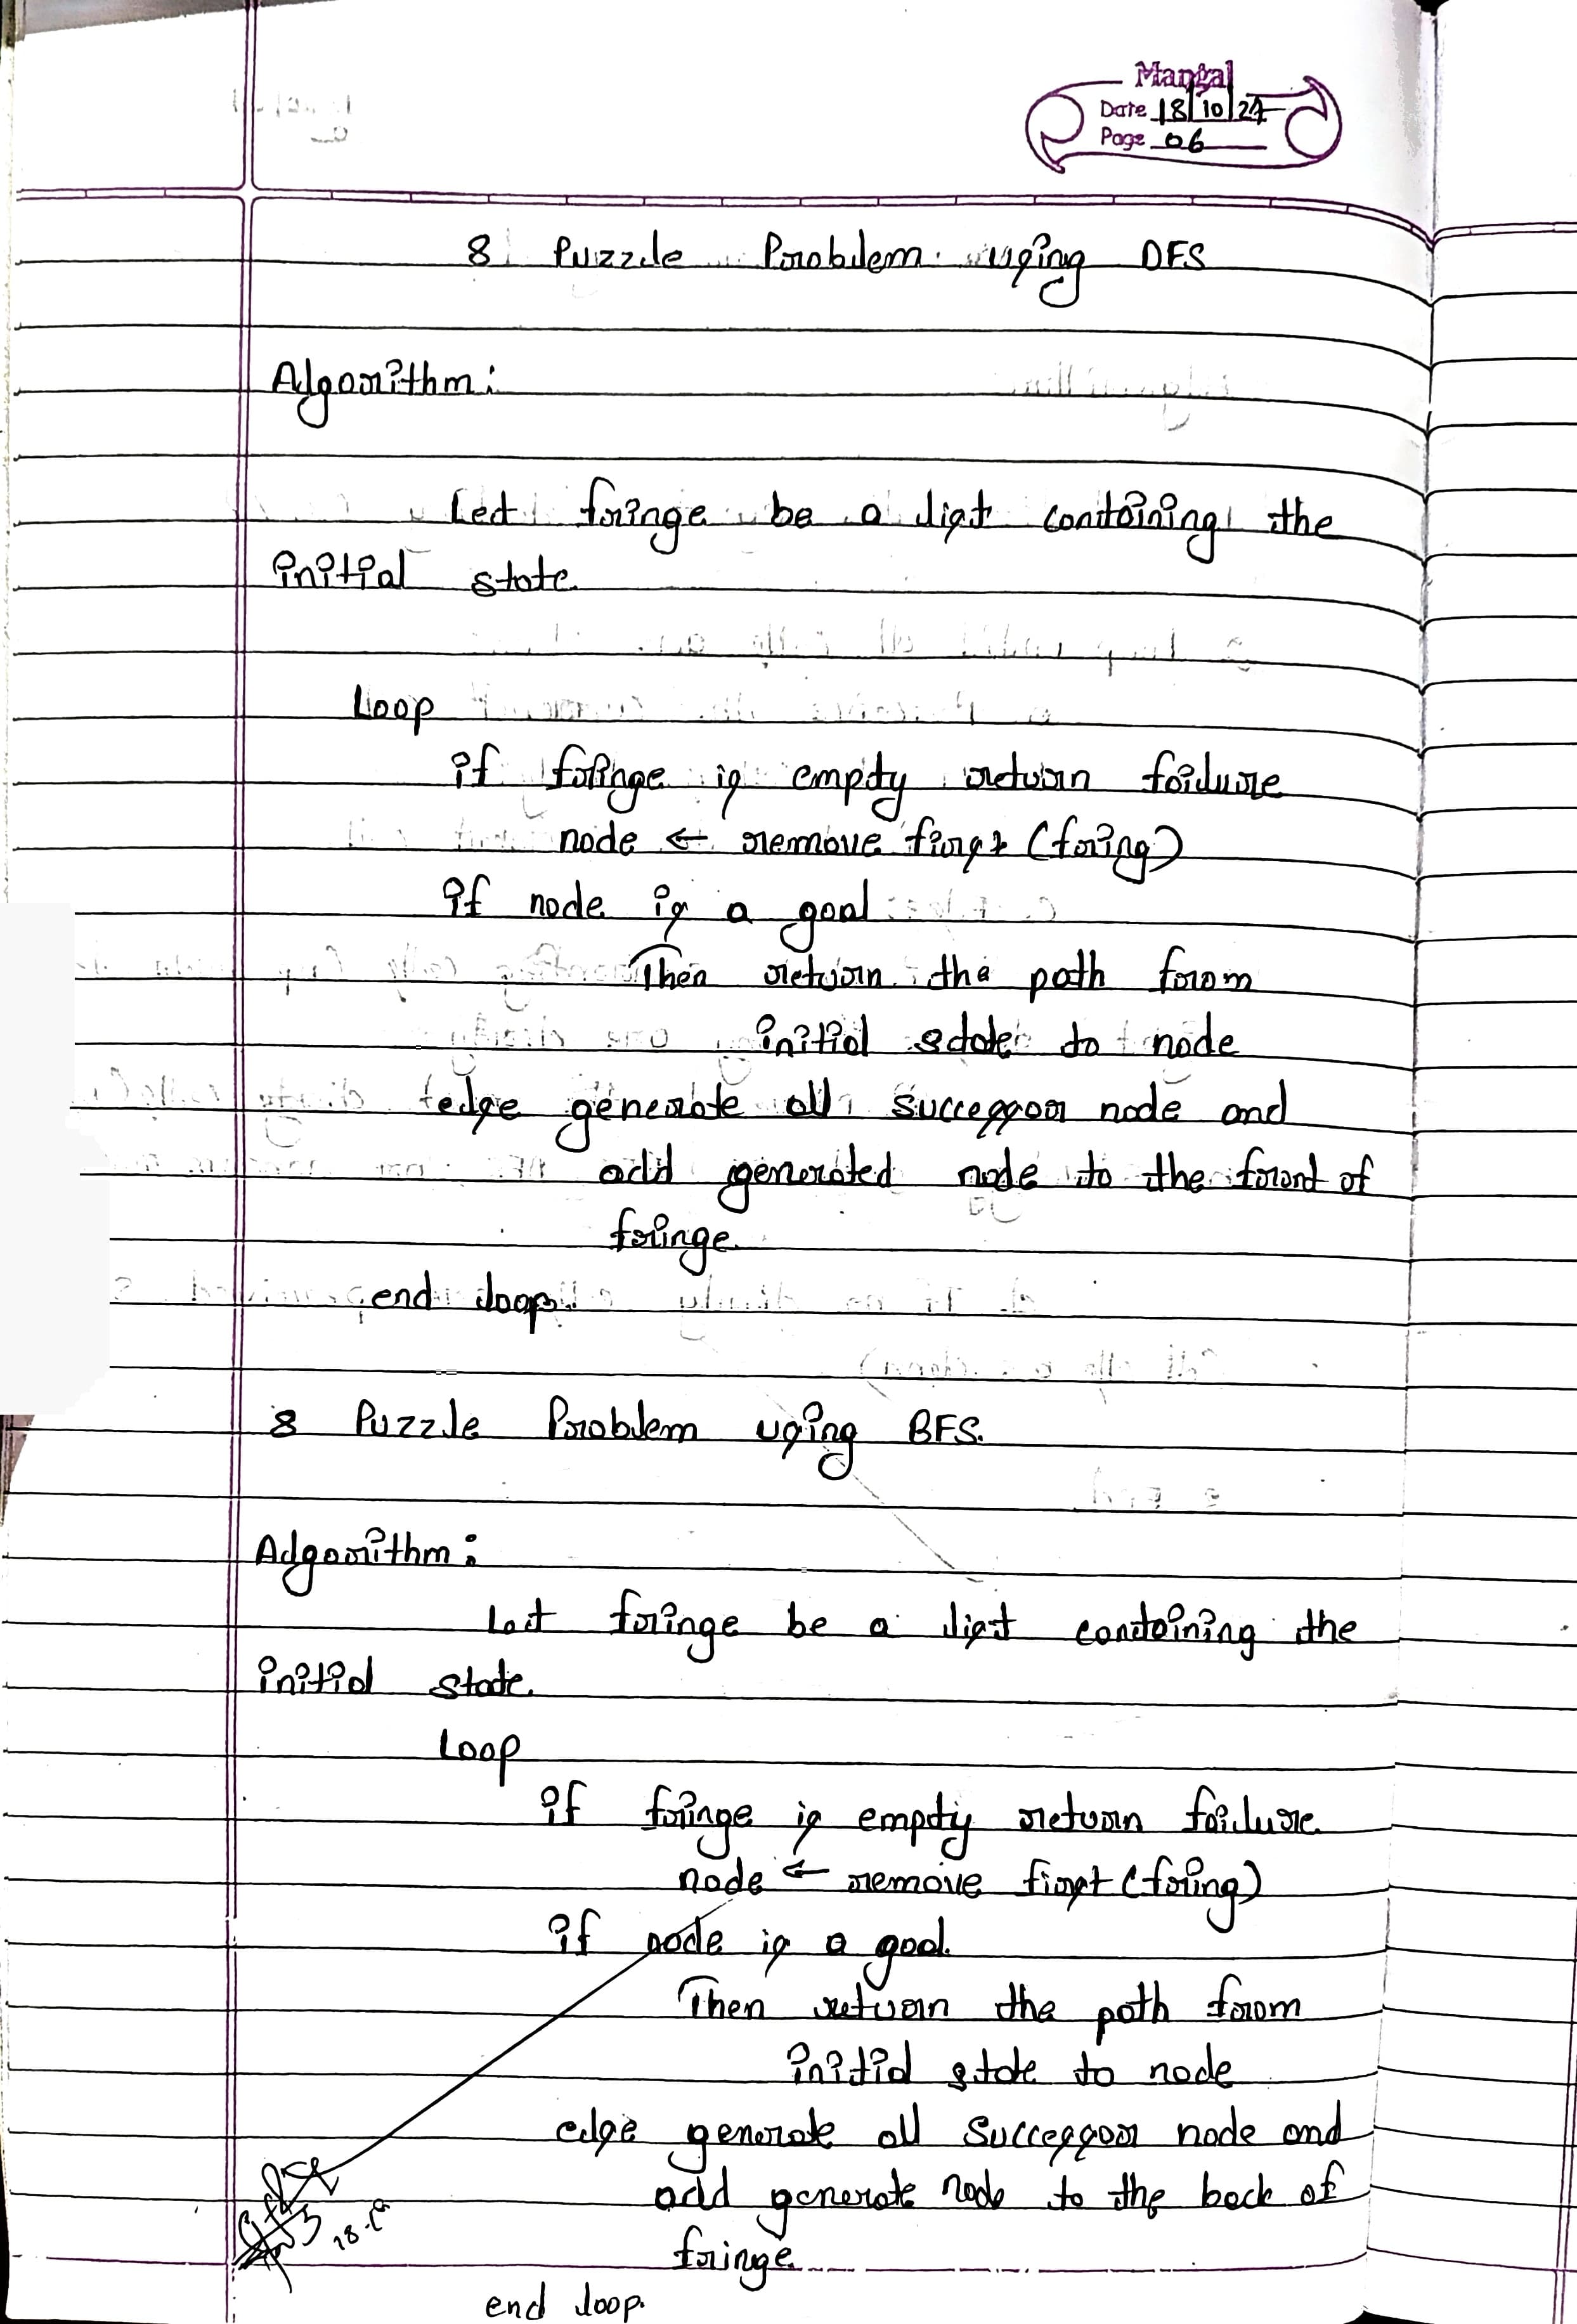 Mangal
Date 18/10/24
Page 06
8 Puzzle Problem using DFS
Algorithm:
Let fringe be a list containing the
initial state.
Loop
if fringe is empty return failure
node ← remove first (fring)
if node is a goal
Then return the path from
initial state to node
else generate all successor node and
add generated node to the front of
fringe.
end loop.
8 Puzzle Problem using BFS.
Algorithm:
Let fringe be a list containing the
initial state.
Loop
if fringe is empty return failure.
node ← remove first (fring)
if node is a goal.
Then return the path from
initial state to node
else generate all successor node and
add generate node to the back of
fringe
end loop.